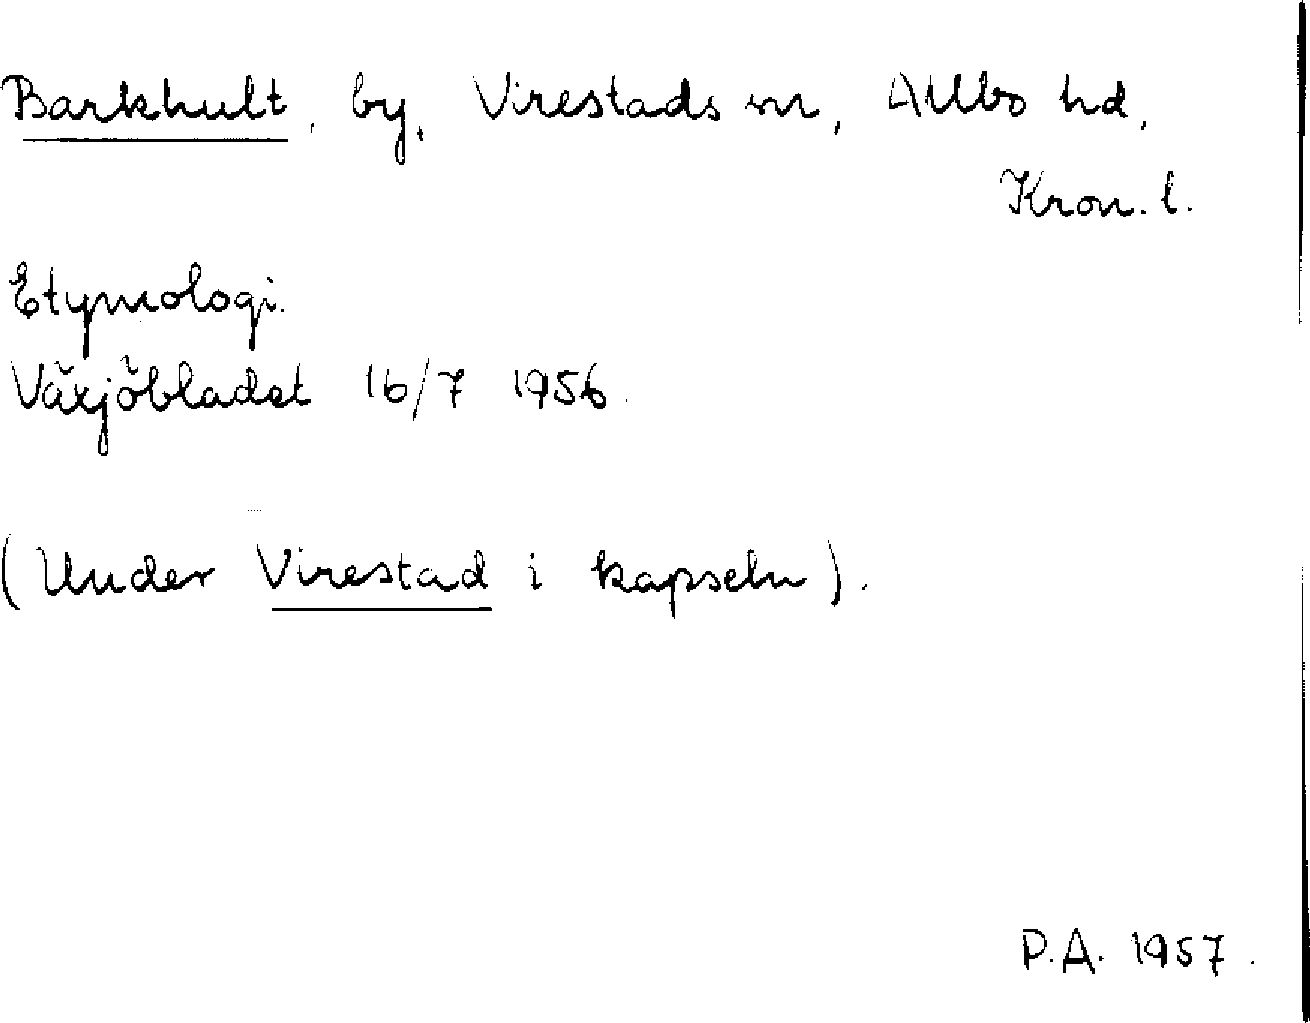 Barkhult, by, Virestads sn, Allbo hd,
Kron. l.
Etymologi.
Växjöbladet 16/7 1956.
(Under Virestad i kapseln).
P.A. 1957.